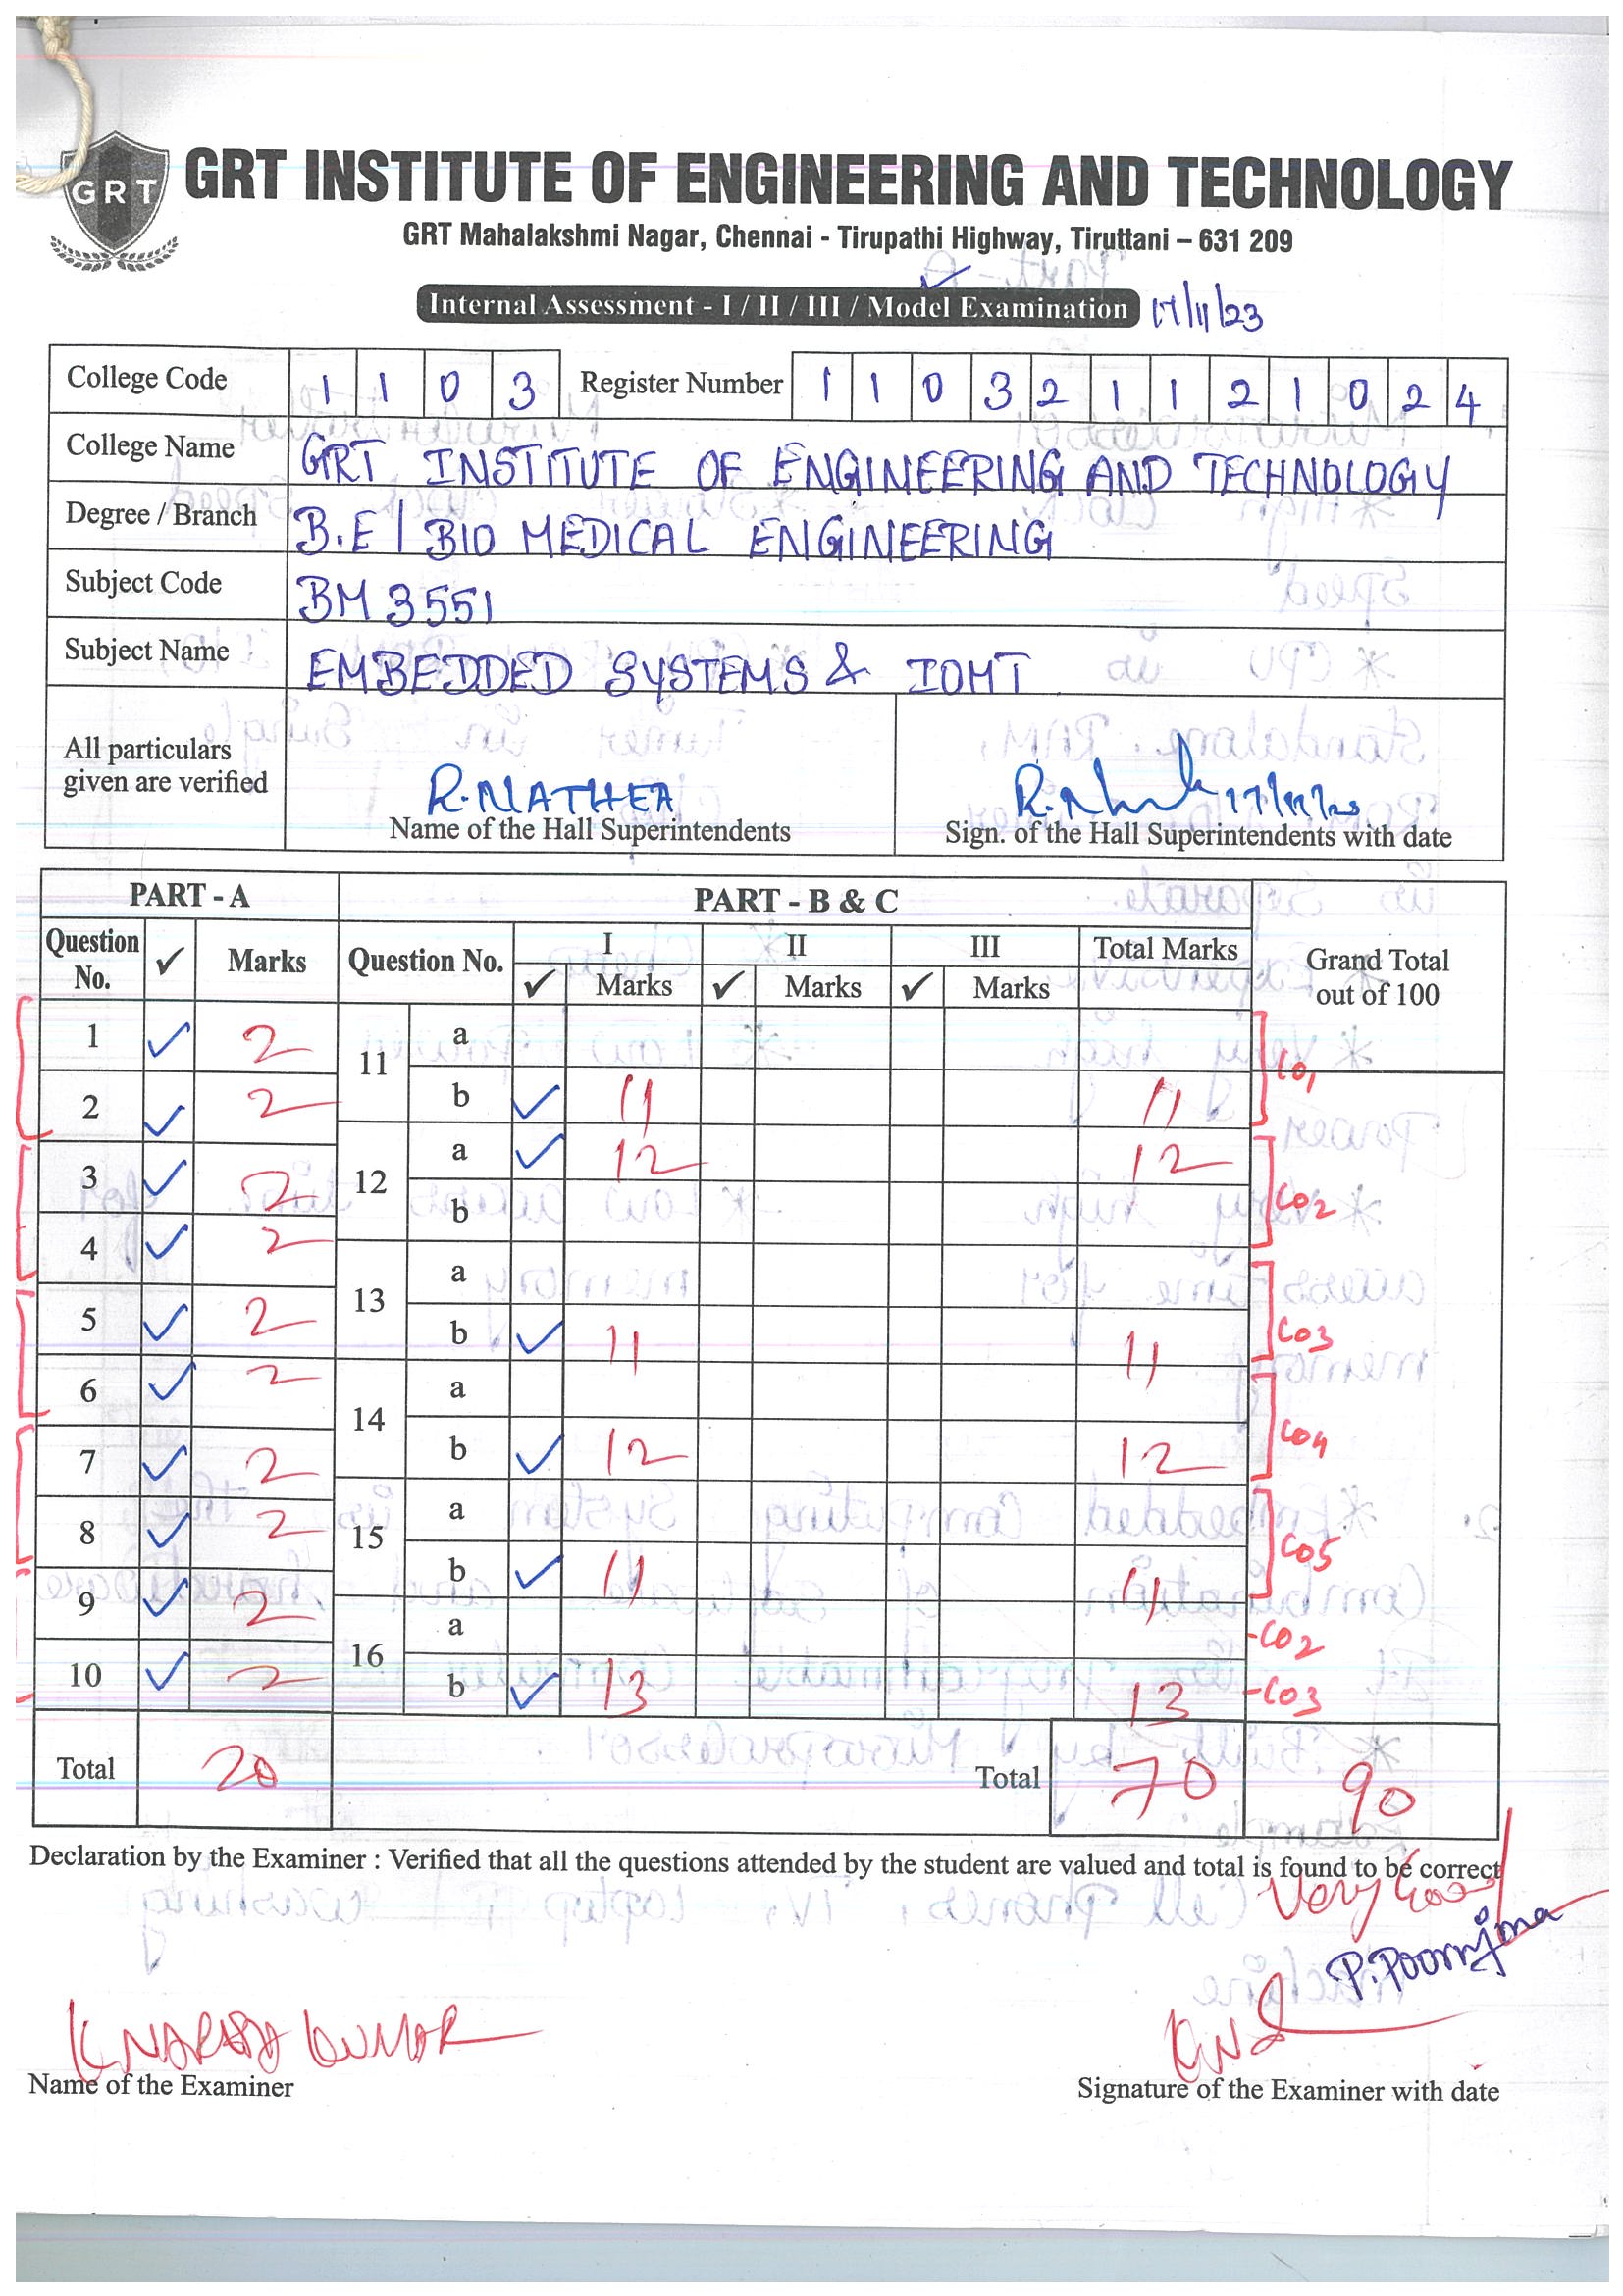 GRT
GRT INSTITUTE OF ENGINEERING AND TECHNOLOGY
GRT Mahalakshmi Nagar, Chennai - Tirupathi Highway, Tiruttani – 631 209
Internal Assessment - I / II / III / Model Examination 17/11/23
College Code 1 1 0 3 Register Number 1 1 0 3 2 1 1 2 1 0 2 4
College Name GRT INSTITUTE OF ENGINEERING AND TECHNOLOGY
Degree / Branch B.E | BIO MEDICAL ENGINEERING
Subject Code BM3551
Subject Name EMBEDDED SYSTEMS & IOMT
All particulars
given are verified
R.MATHEA
Name of the Hall Superintendents
Sign. of the Hall Superintendents with date
PART - A PART - B & C
Question No. ✓ Marks Question No. I II III Total Marks Grand Total out of 100
✓ Marks ✓ Marks ✓ Marks
1 ✓ 2 11 a
CO1
2 ✓ 2 b ✓ 11 11
3 ✓ 2 12 a ✓ 12 12
CO2
4 ✓ 2 b
5 ✓ 2 13 a
b ✓ 11 11 CO3
6 ✓ 2 14 a
7 ✓ 2 b ✓ 12 12 CO4
8 ✓ 2 15 a
CO5
9 ✓ 2 b ✓ 11 11
16 a -CO2
10 ✓ 2 b ✓ 13 13 -CO3
Total 20 Total 70 90
Declaration by the Examiner : Verified that all the questions attended by the student are valued and total is found to be correct
Very Good
P.Poornjma
Name of the Examiner
Signature of the Examiner with date